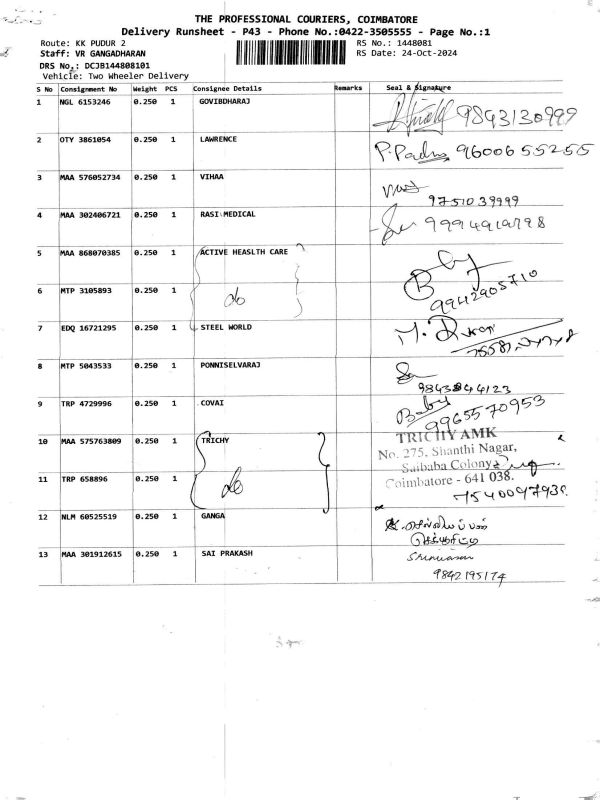 THE PROFESSIONAL COURIERS, COIMBATORE
Delivery Runsheet - P43 - Phone No.:0422-3505555 - Page No.:1
Route: KK PUDUR 2 RS No.: 1448081
Staff: VR GANGADHARAN RS Date: 24-Oct-2024
DRS No.: DCJB144808101
Vehicle: Two Wheeler Delivery
S No Consignment No Weight PCS Consignee Details Remarks Seal & Signature
1 NGL 6153246 0.250 1 GOVIBDHARAJ 9843130999
2 OTY 3861054 0.250 1 LAWRENCE P. Padma 9600655255
3 MAA 576052734 0.250 1 VIHAA 9751039999
4 MAA 302406721 0.250 1 RASI MEDICAL
5 MAA 868070385 0.250 1 ACTIVE HEASLTH CARE
6 MTP 3105893 0.250 1 9942905710
7 EDQ 16721295 0.250 1 STEEL WORLD
8 MTP 5043533 0.250 1 PONNISELVARAJ
9 TRP 4729996 0.250 1 COVAI Baby 9965570953
10 MAA 575763809 0.250 1 TRICHY TRICHY AMK
No. 275, Shanthi Nagar,
Saibaba Colony
11 TRP 658896 0.250 1 Coimbatore - 641 038.
12 NLM 60525519 0.250 1 GANGA
13 MAA 301912615 0.250 1 SAI PRAKASH Srinivasan
9842195174